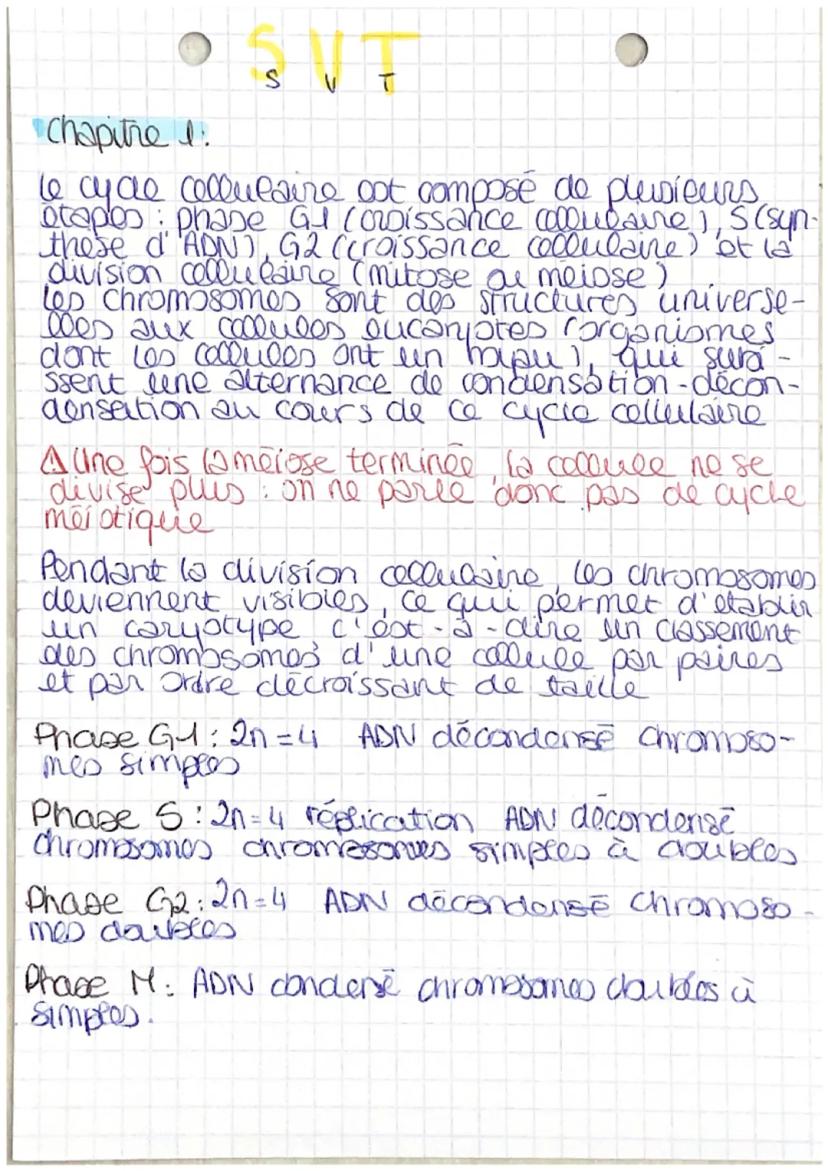 SVT
S V T
Chapitre 1:
Le cycle cellulaire est composé de plusieurs
étapes : phase G1 (croissance cellulaire), S (syn-
thèse d'ADN), G2 (croissance cellulaire) et la
division cellulaire (mitose ou méiose)
Les chromosomes sont des structures universe-
lles aux cellules eucaryotes (organismes
dont les cellules ont un noyau), qui subi-
ssent une alternance de condensation-décon-
densation au cours de ce cycle cellulaire
⚠ Une fois la méiose terminée, la cellule ne se
divise plus : on ne parle donc pas de cycle
méiotique
Pendant la division cellulaire, les chromosomes
deviennent visibles, ce qui permet d'établir
un caryotype c'est-à-dire un classement
des chromosomes d'une cellule par paires
et par ordre décroissant de taille
Phase G1 : 2n=4 ADN décondensé chromoso-
mes simples
Phase S : 2n=4 réplication ADN décondensé
chromosomes chromosomes simples à doubles
Phase G2 : 2n=4 ADN décondensé chromoso-
mes doubles
Phase M : ADN condensé chromosomes doubles à
simples.